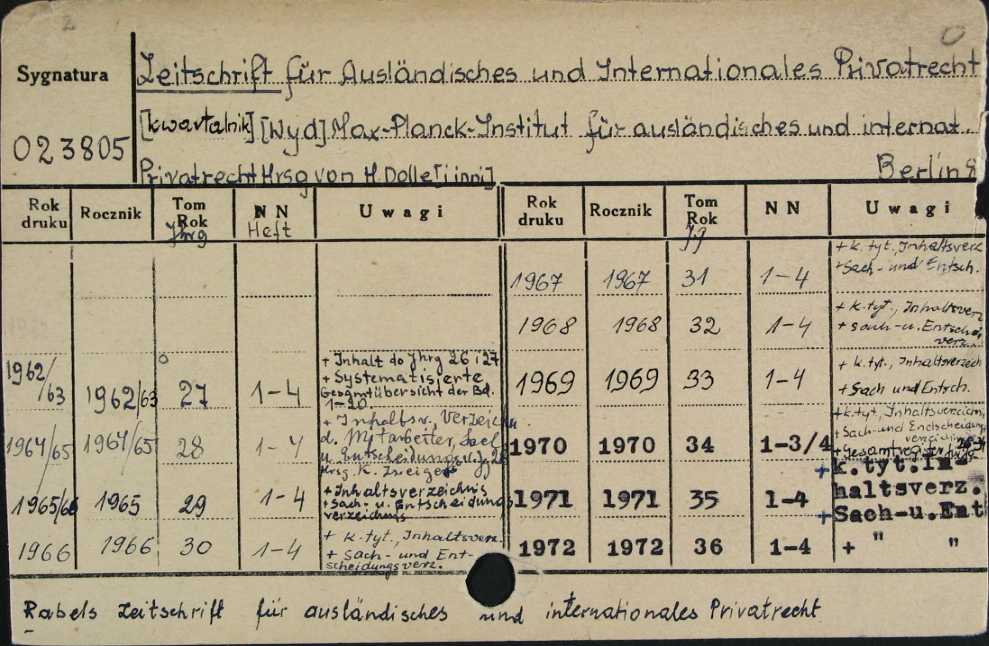 Sygnatura
023805
Zeitschrift für Ausländisches und Internationales Privatrecht
[kwartalnik] [Wyd] Max-Planck-Institut für ausländisches und internat.
Privatrecht Hrsg von H. Dölle [i inni] Berlin
Rok druku Rocznik Tom Rok Jhrg NN Heft Uwagi
1962/63 1962/63 27 1-4 + Inhalt do Jhrg 26 i 27
+ Systematisierte
Gesamtübersicht der Bd.
1-20
1964/65 1964/65 28 1-4 + Inhaltsv, Verzeichn
d. Mitarbeiter, Sach
u. Entscheidungsv.
Hrsg. K. Zweigert
1965/66 1965 29 1-4 + Inhaltsverzeichnis
+ Sach- u. Entscheidungs
verzeichnis
1966 1966 30 1-4 + k.tyt., Inhaltsverz.
+ Sach- und Ent-
scheidungsverz.
Rok druku Rocznik Tom Rok Jg NN Uwagi
1967 1967 31 1-4 + k.tyt., Inhaltsverz
+ Sach- und Entsch.
1968 1968 32 1-4 + k.tyt., Inhaltsverz
+ Sach-u. Entsch
verz.
1969 1969 33 1-4 + k.tyt., Inhaltsverzeich
+ Sach und Entsch.
1970 1970 34 1-3/4 + k.tyt, Inhaltsverzeichn,
+ Sach-und Entscheidung
verzeichnis
+ Gesamtregister
1971 1971 35 1-4 + k.tyt.In-
haltsverz.
+ Sach-u.Ent
1972 1972 36 1-4 + " "
Rabels Zeitschrift für ausländisches und internationales Privatrecht